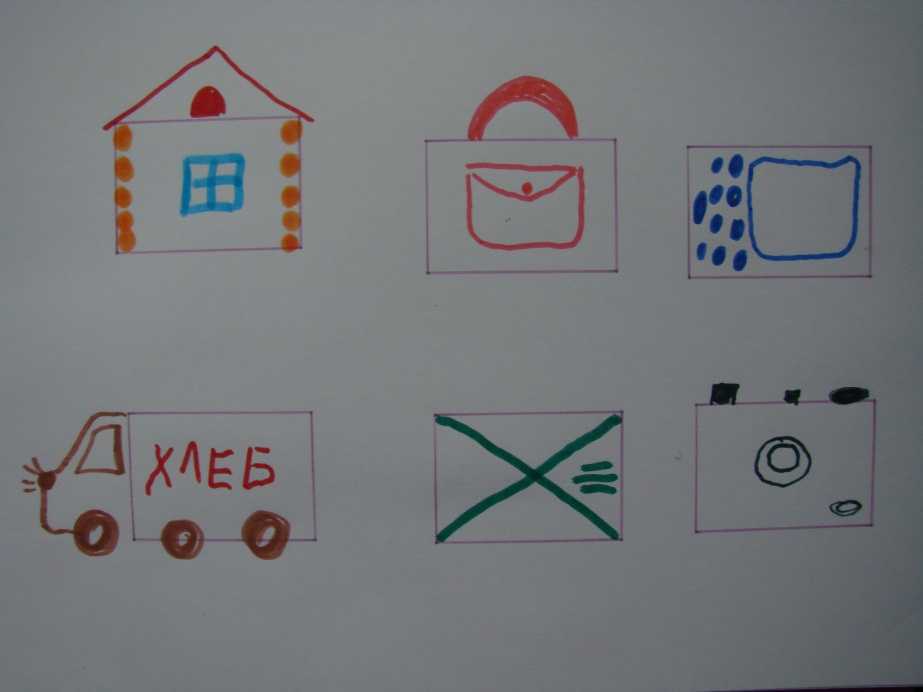 ХЛЕБ